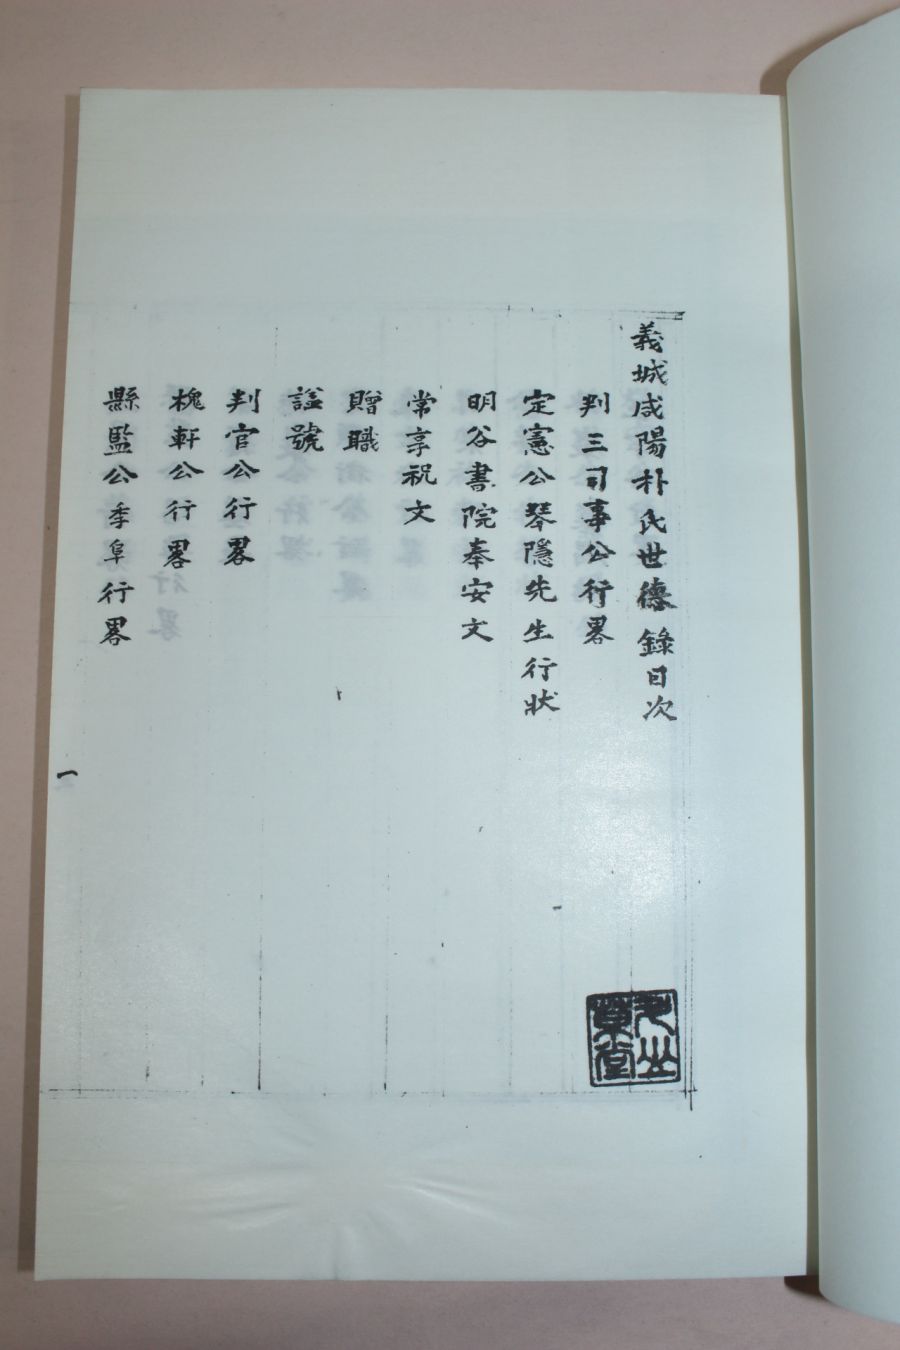 義城咸陽朴氏世德錄目次
判三司事公行畧
定憲公琴隱先生行狀
明谷書院奉安文
常享祝文
贈職
諡號
判官公行畧
槐軒公行畧
縣監公季阜行畧
一